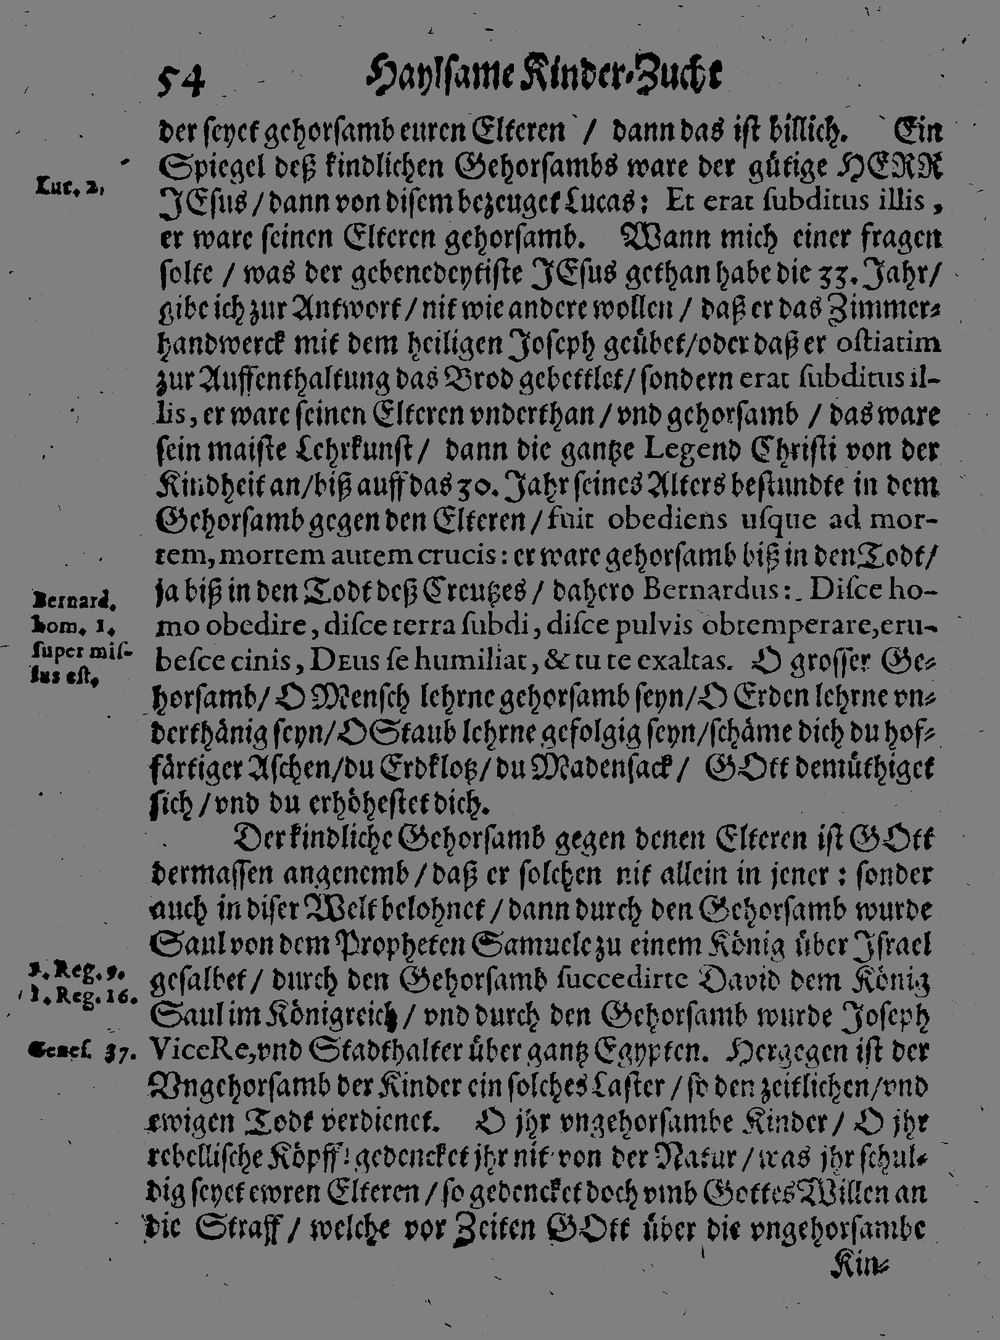 54 Haylsame Kinder-Zucht
der seyet gehorsamb euren Elteren / dann das ist billich. Ein
Spiegel deß kindlichen Gehorsambs ware der gütige HERR
Luc. 2,
JEsus / dann von disem bezeuget Lucas: Et erat subditus illis,
er ware seinen Elteren gehorsamb. Wann mich einer fragen
solte / was der gebenedeytiste JEsus gethan habe die 33. Jahr /
gibe ich zur Antwort / nit wie andere wollen / daß er das Zimmer-
handwerck mit dem heiligen Joseph geübet / oder daß er ostiatim
zur Auffenthaltung das Brod gebettlet / sondern erat subditus il-
lis, er ware seinen Elteren vnderthan / vnd gehorsamb / das ware
sein maiste Lehrkunst / dann die gantze Legend Christi von der
Kindheit an / biß auff das 30. Jahr seines Alters bestundte in dem
Gehorsamb gegen den Elteren / fuit obediens usque ad mor-
tem, mortem autem crucis: er ware gehorsamb biß in den Todt /
ja biß in den Todt deß Creutzes / dahero Bernardus: Disce ho-
Bernard.
hom. 1.
super mis-
sus est.
mo obedire, disce terra subdi, disce pulvis obtemperare, eru-
besce cinis, DEus se humiliat, & tu te exaltas. O grosser Ge-
horsamb / O Mensch lehrne gehorsamb seyn / O Erden lehrne vn-
derthänig seyn / O Staub lehrne gefolgig seyn / schäme dich du hof-
färtiger Aschen / du Erdklotz / du Madensack / GOtt demüthiget
sich / vnd du erhöhestet dich.
Der kindliche Gehorsamb gegen denen Elteren ist GOtt
dermassen angenemb / daß er solchen nit allein in jener: sonder
auch in diser Welt belohnet / dann durch den Gehorsamb wurde
Saul von dem Propheten Samuele zu einem König über Israel
1. Reg. 9.
gesalbet / durch den Gehorsamb succedirte David dem König
1. Reg. 16.
Saul im Königreich / vnd durch den Gehorsamb wurde Joseph
Genes. 37.
ViceRe, vnd Stadthalter über gantz Egypten. Hergegen ist der
Vngehorsamb der Kinder ein solches Laster / so den zeitlichen / vnd
ewigen Todt verdienet. O jhr vngehorsambe Kinder / O jhr
rebellische Köpff! gedencket jhr nit von der Natur / was jhr schul-
dig seyet ewren Elteren / so gedencket doch vmb Gottes Willen an
die Straff / welche vor Zeiten GOtt über die vngehorsambe
Kin-